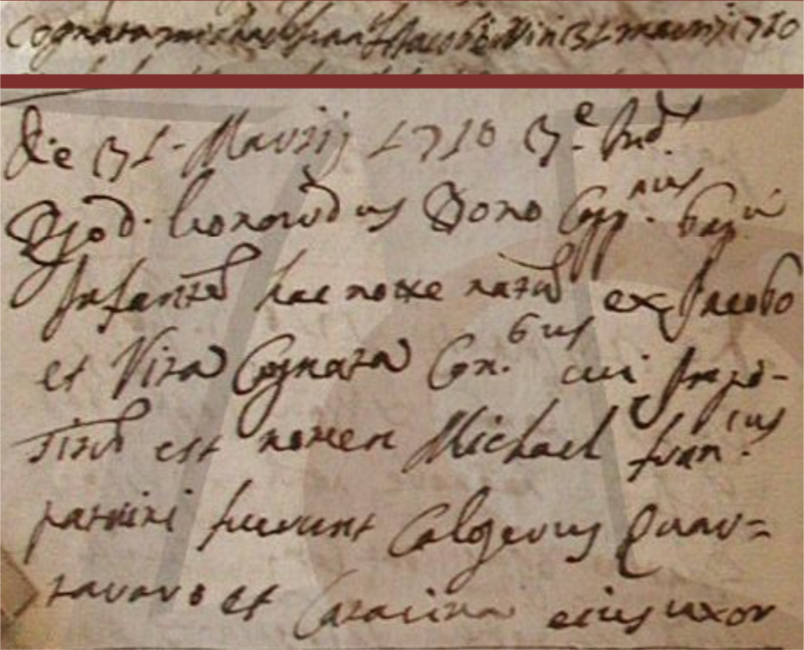 Cognata michael fran.s Jacobi Vin 31 martij 1710
Die 31. Martij 1710 3.e Ind.
D Jod. Leonardus Bono Capp.nus bap.vi
Infantē hac nocte natū ex Jacobo
et Vita Cognata Con.gus cui Impo-
situ est nomen Michael fran.cus
patrini fuerunt Calogerus Quar=
tararo et Catarina eius uxor